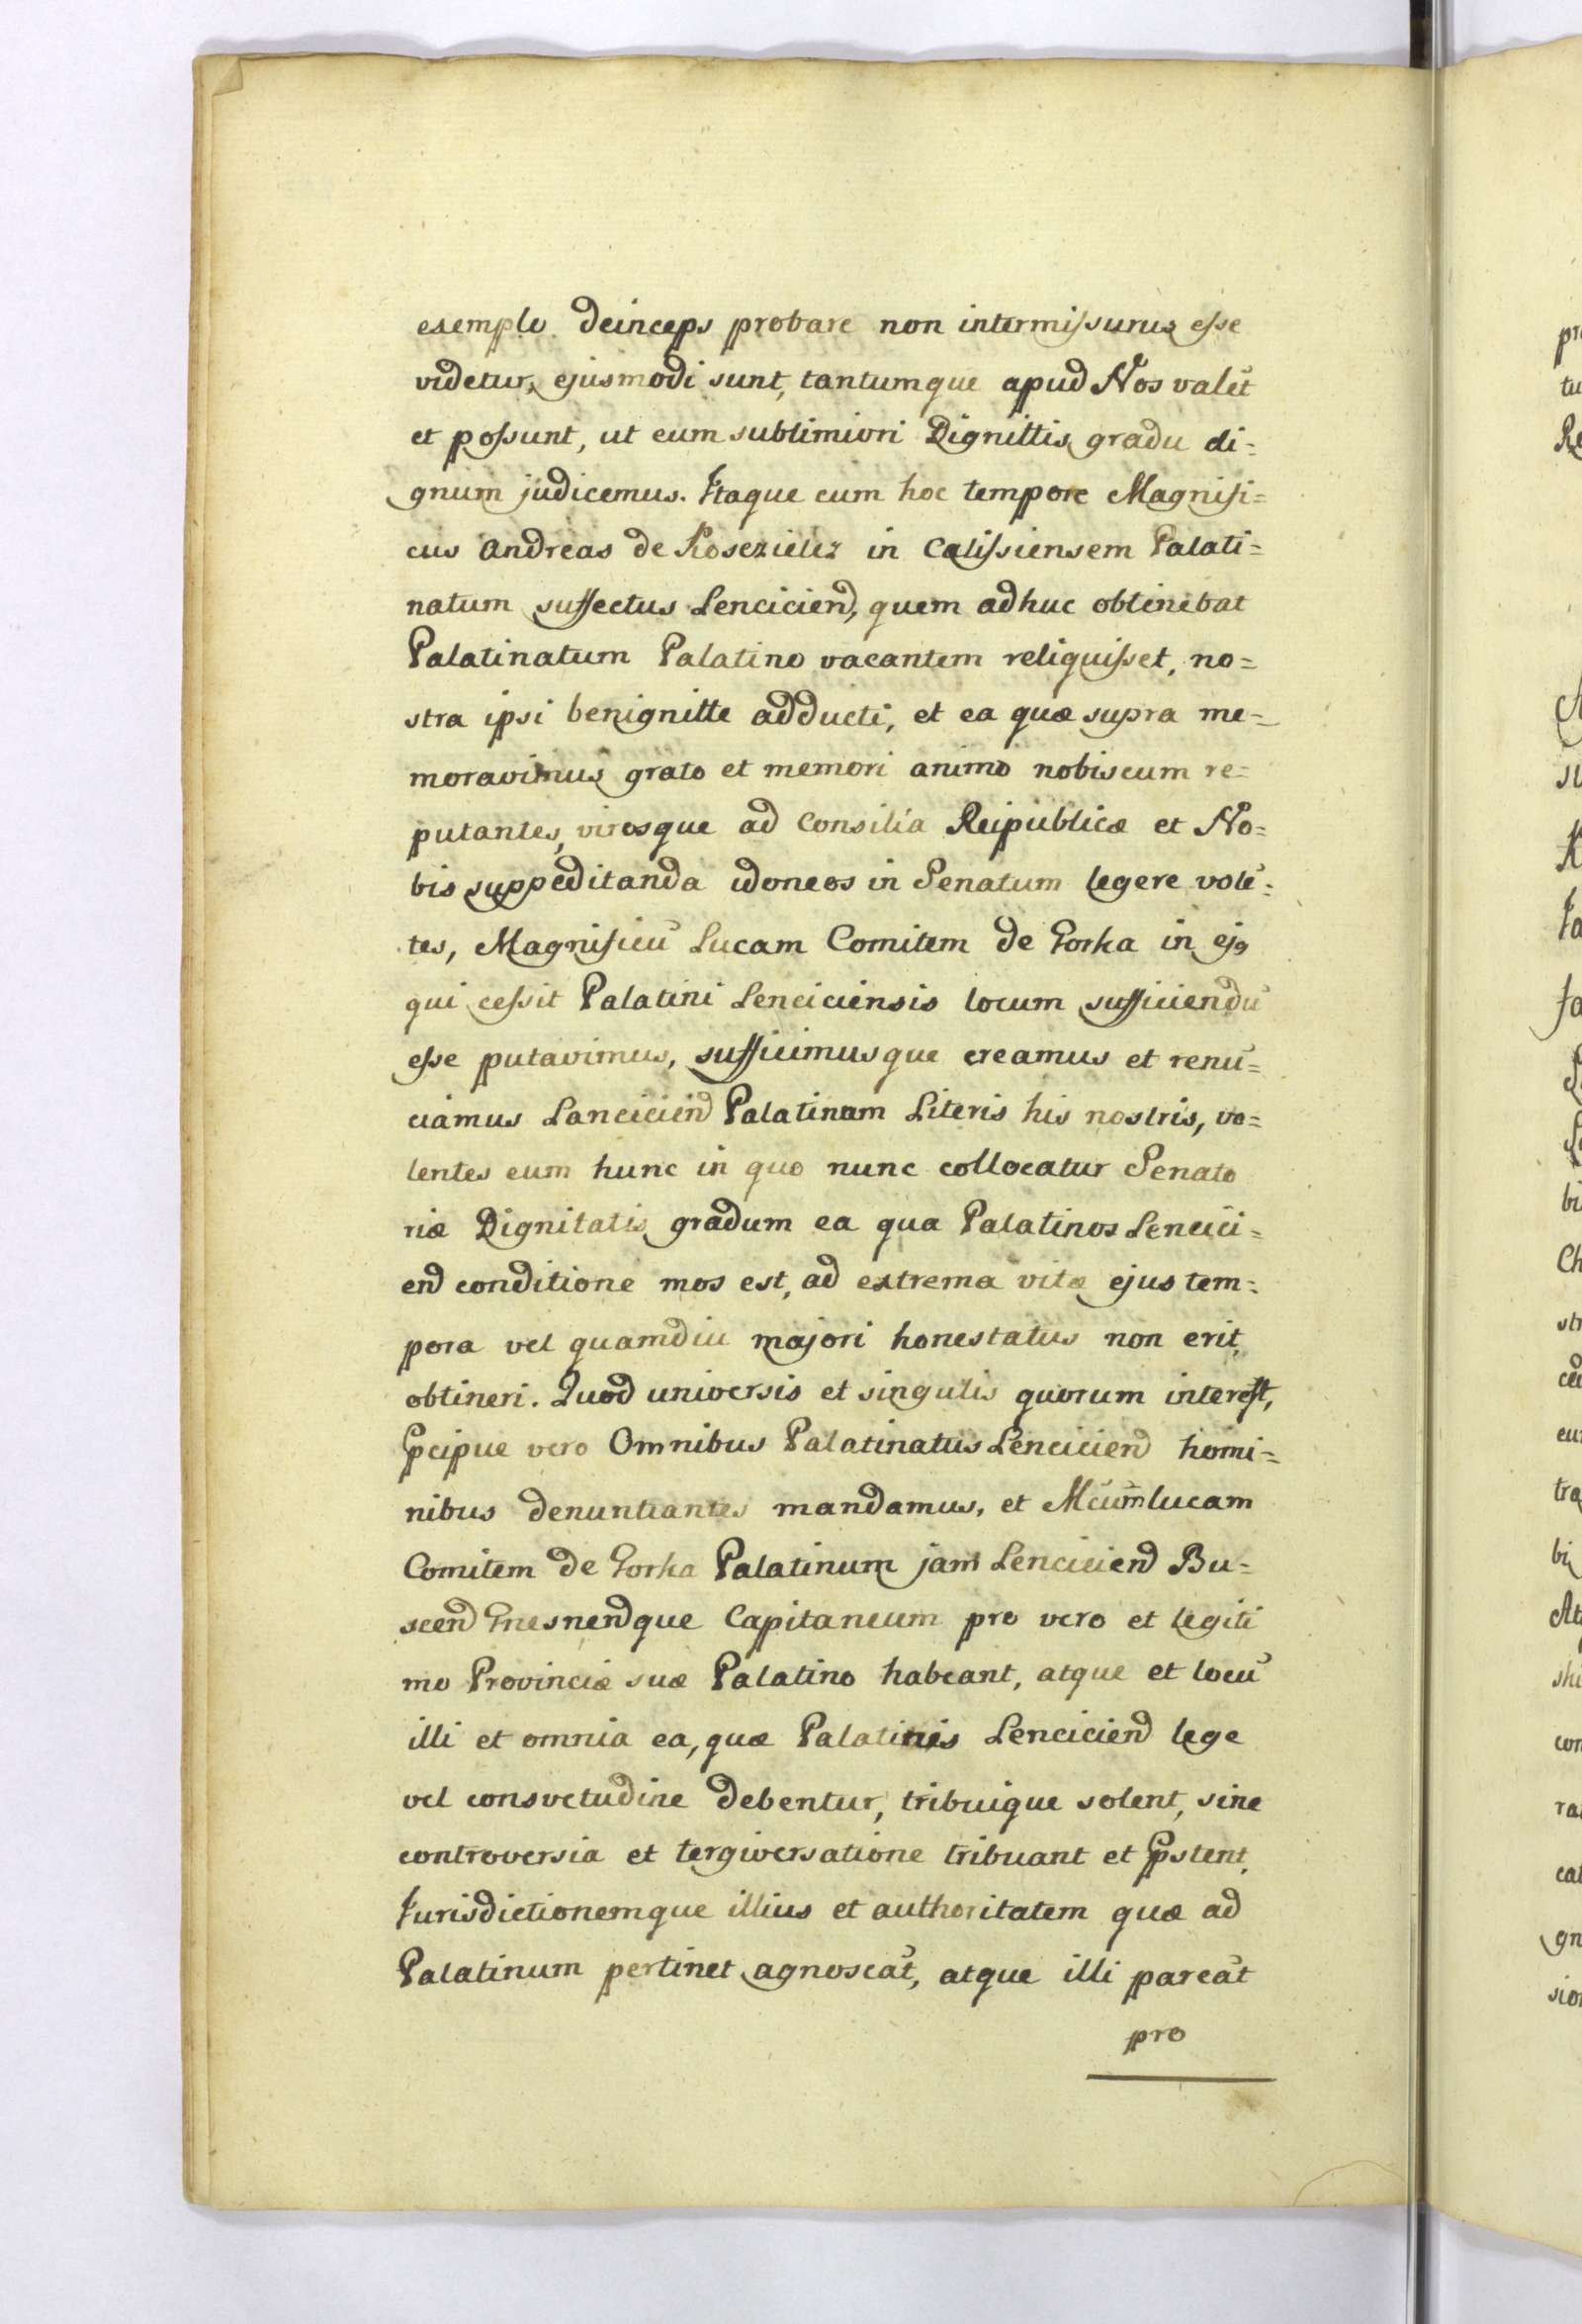 exemplo deinceps probare non intermissurus esse
videtur, ejusmodi sunt, tantumque apud Nos valēt
et possunt, ut eum sublimiori Dignittis gradu di=
gnum judicemus. Itaque cum hoc tempore Magnifi=
cus Andreas de Koscielez in Calissiensem Palati=
natum suffectus Lenciciend, quem adhuc obtinebat
Palatinatum Palatino vacantem reliquisset, no=
stra ipsi benignitte adducti, et ea quæ supra me=
moravimus grato et memori animo nobiscum re=
putantes, virosque ad Consilia Reipublicæ et No=
bis suppeditanda idoneos in Senatum legere volē=
tes, Magnificū Lucam Comitem de Gorka in ejꝯ
qui cessit Palatini Lenciciensis locum sufficiendū
esse putavimus, sufficimusque creamus et renū=
ciamus Lanciciend Palatinum Literis his nostris, vo=
lentes eum hunc in quo nunc collocatur Senato
riæ Dignitatis gradum ea qua Palatinos Lencici=
end conditione mos est, ad extrema vitæ ejus tem=
pora vel quamdiu majori honestatus non erit,
obtineri. Quod universis et singulis quorum interest,
Pcipue vero Omnibus Palatinatus Lenciciend homi=
nibus denuntiantes mandamus, et Mcum̄ Lucam
Comitem de Gorka Palatinum jam Lenciciend Bu=
scend Gnesnendque Capitaneum pro vero et legiti
mo Provinciæ suæ Palatino habeant, atque et locū
illi et omnia ea, quæ Palatinis Lenciciend lege
vel consvetudine debentur, tribuique solent, sine
controversia et tergiversatione tribuant et Pstent,
Jurisdictionemque illius et authoritatem quæ ad
Palatinum pertinet agnoscāt, atque illi pareāt
pro